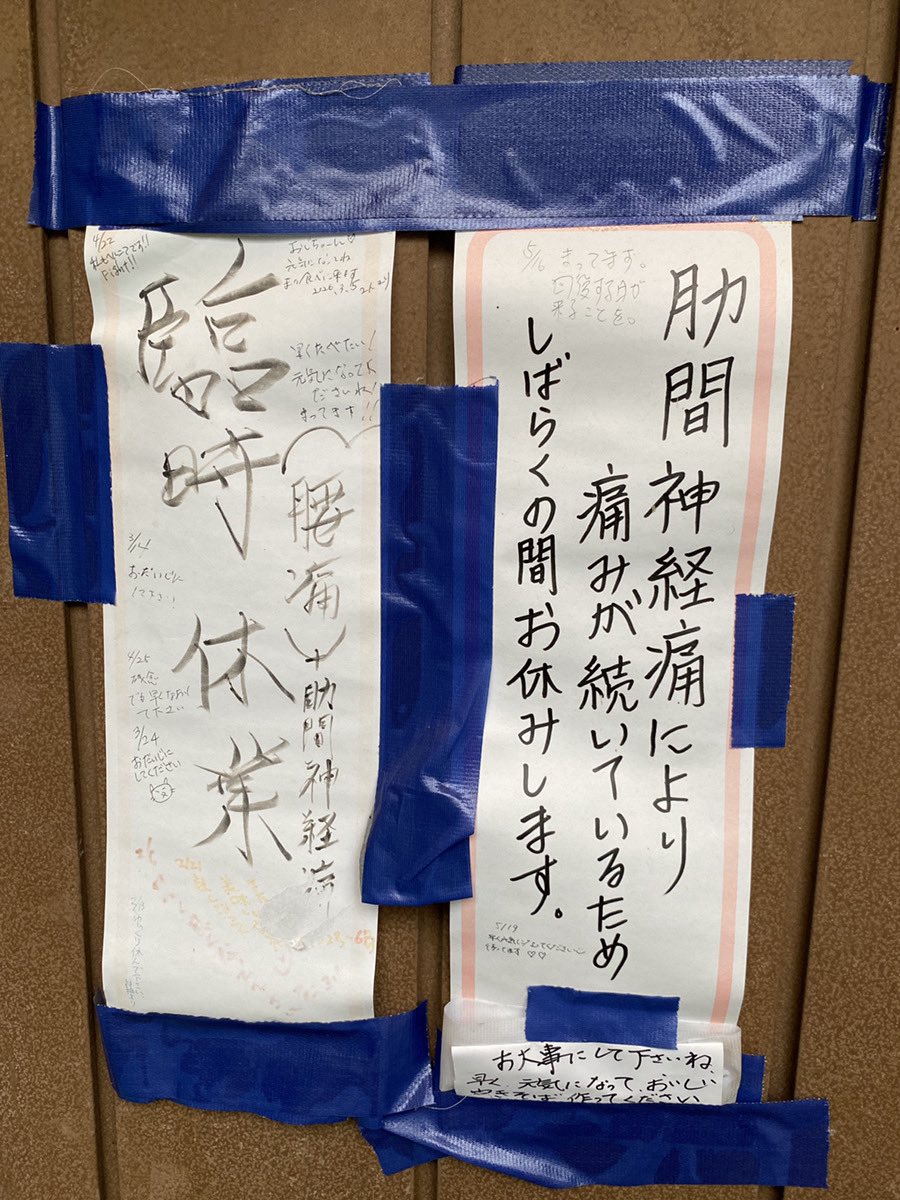 肋間神経痛により
痛みが続いているため
しばらくの間お休みします。
5/16 まってます。
回復する日が
来ることを。
5/19
お大事にして下さいね
早く元気になって、おいしい
やきそば作ってください
臨時休業
(腰痛)+肋間神経痛
4/22
Fight!!
おじちゃーん♡
元気になってね
また食べに来ます
早くたべたい!
元気になってく
ださいね!
まってます!!
3/14
おだいじに
して下さい!
4/25
残念
でも早くなおし
て下さい
3/24
おだいじに
してください